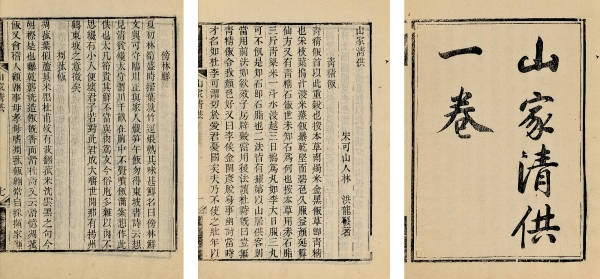 山家清供
一卷
山家清供
宋可山人林 洪龍發著
青精飯
青精飯首以此重穀也按本草南燭木今黑飯草即青精
也採枝葉搗汁浸米蒸飯曝乾堅而碧色久服益顏延算
仙方又有青精石飯世未知石為何也按本草用赤石脂
三斤青粱米一斗水浸越三日搗為丸如李大日服三丸
可不飢是知石即石脂也二法皆有據第以山居供客則
當用前法如欲效子房辟穀當用後法讀杜詩既曰豈無
青精飯令我顏色好又曰李侯金閨彥脫身事幽討當時
才名如杜李可謂切於愛君憂國矣夫乃不使之壯年以
傍林鮮
夏初林筍盛時掃葉就竹邊煨熟其味甚鮮名曰傍林鮮
文與可守臨川正與家人煨筍午飯忽得東坡書詩云想
見清貧饞太守渭川千畝在胸中不覺噴飯滿案想作此
供也大凡筍貴甘鮮不當與肉為友今俗庖多雜以肉不
思纔有小人便壞君子若對此君成大嚼世間那有揚州
鶴東坡之意微矣
彫菰飯
彫菰葉似蘆其米黑杜甫故有波翻菰米沈雲黑之句今
胡穄是也曝乾礱洗造飯既香而滑杜詩又云滑憶彫菰
飯又會稽人顧翱事母孝母嗜彫菰飯翱常自採擷家瀕
山家清供